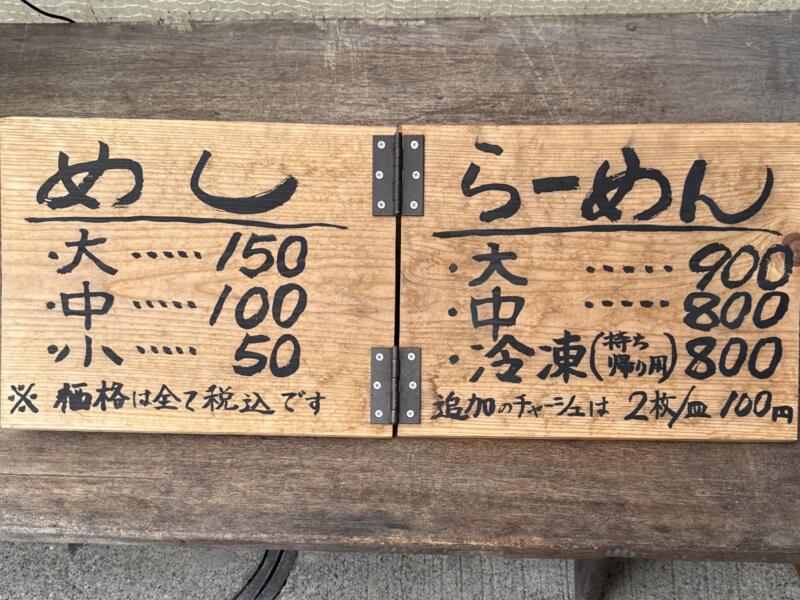 めし
・大・・・・・150
・中・・・・・100
・小・・・・・50
※ 価格は全て税込です
らーめん
・大・・・・・900
・中・・・・・800
・冷凍(持ち帰り用)800
追加のチャーシュは 2枚/皿 100円